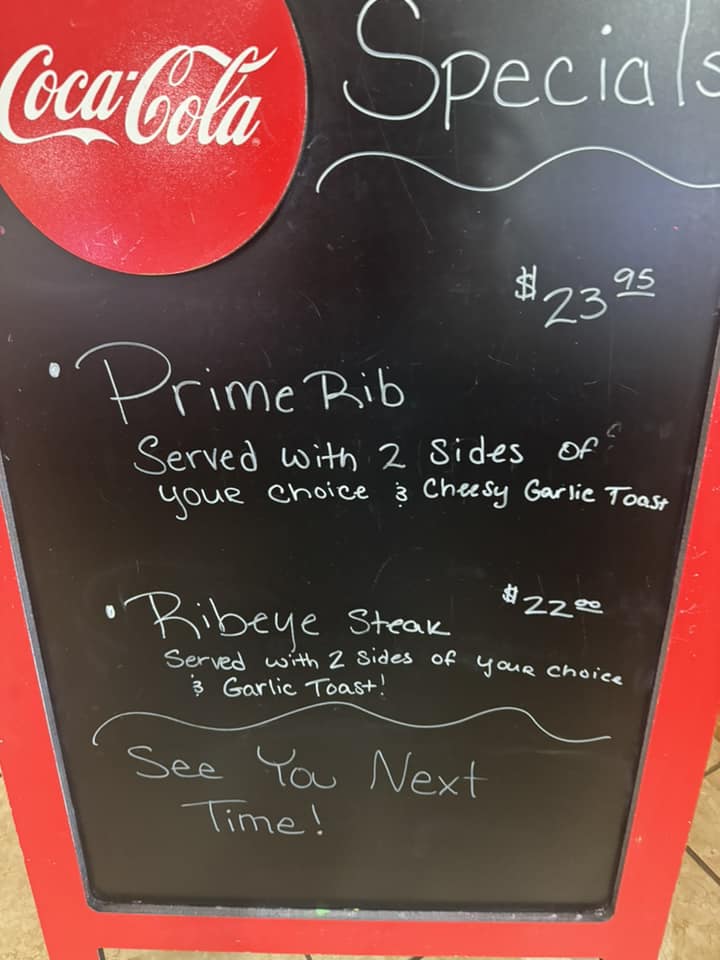 Coca-Cola
Specials
$23 95
• Prime Rib
Served with 2 Sides of
your choice & Cheesy Garlic Toast
• Ribeye Steak
$22 00
Served with 2 Sides of your choice
& Garlic Toast!
See You Next
Time!